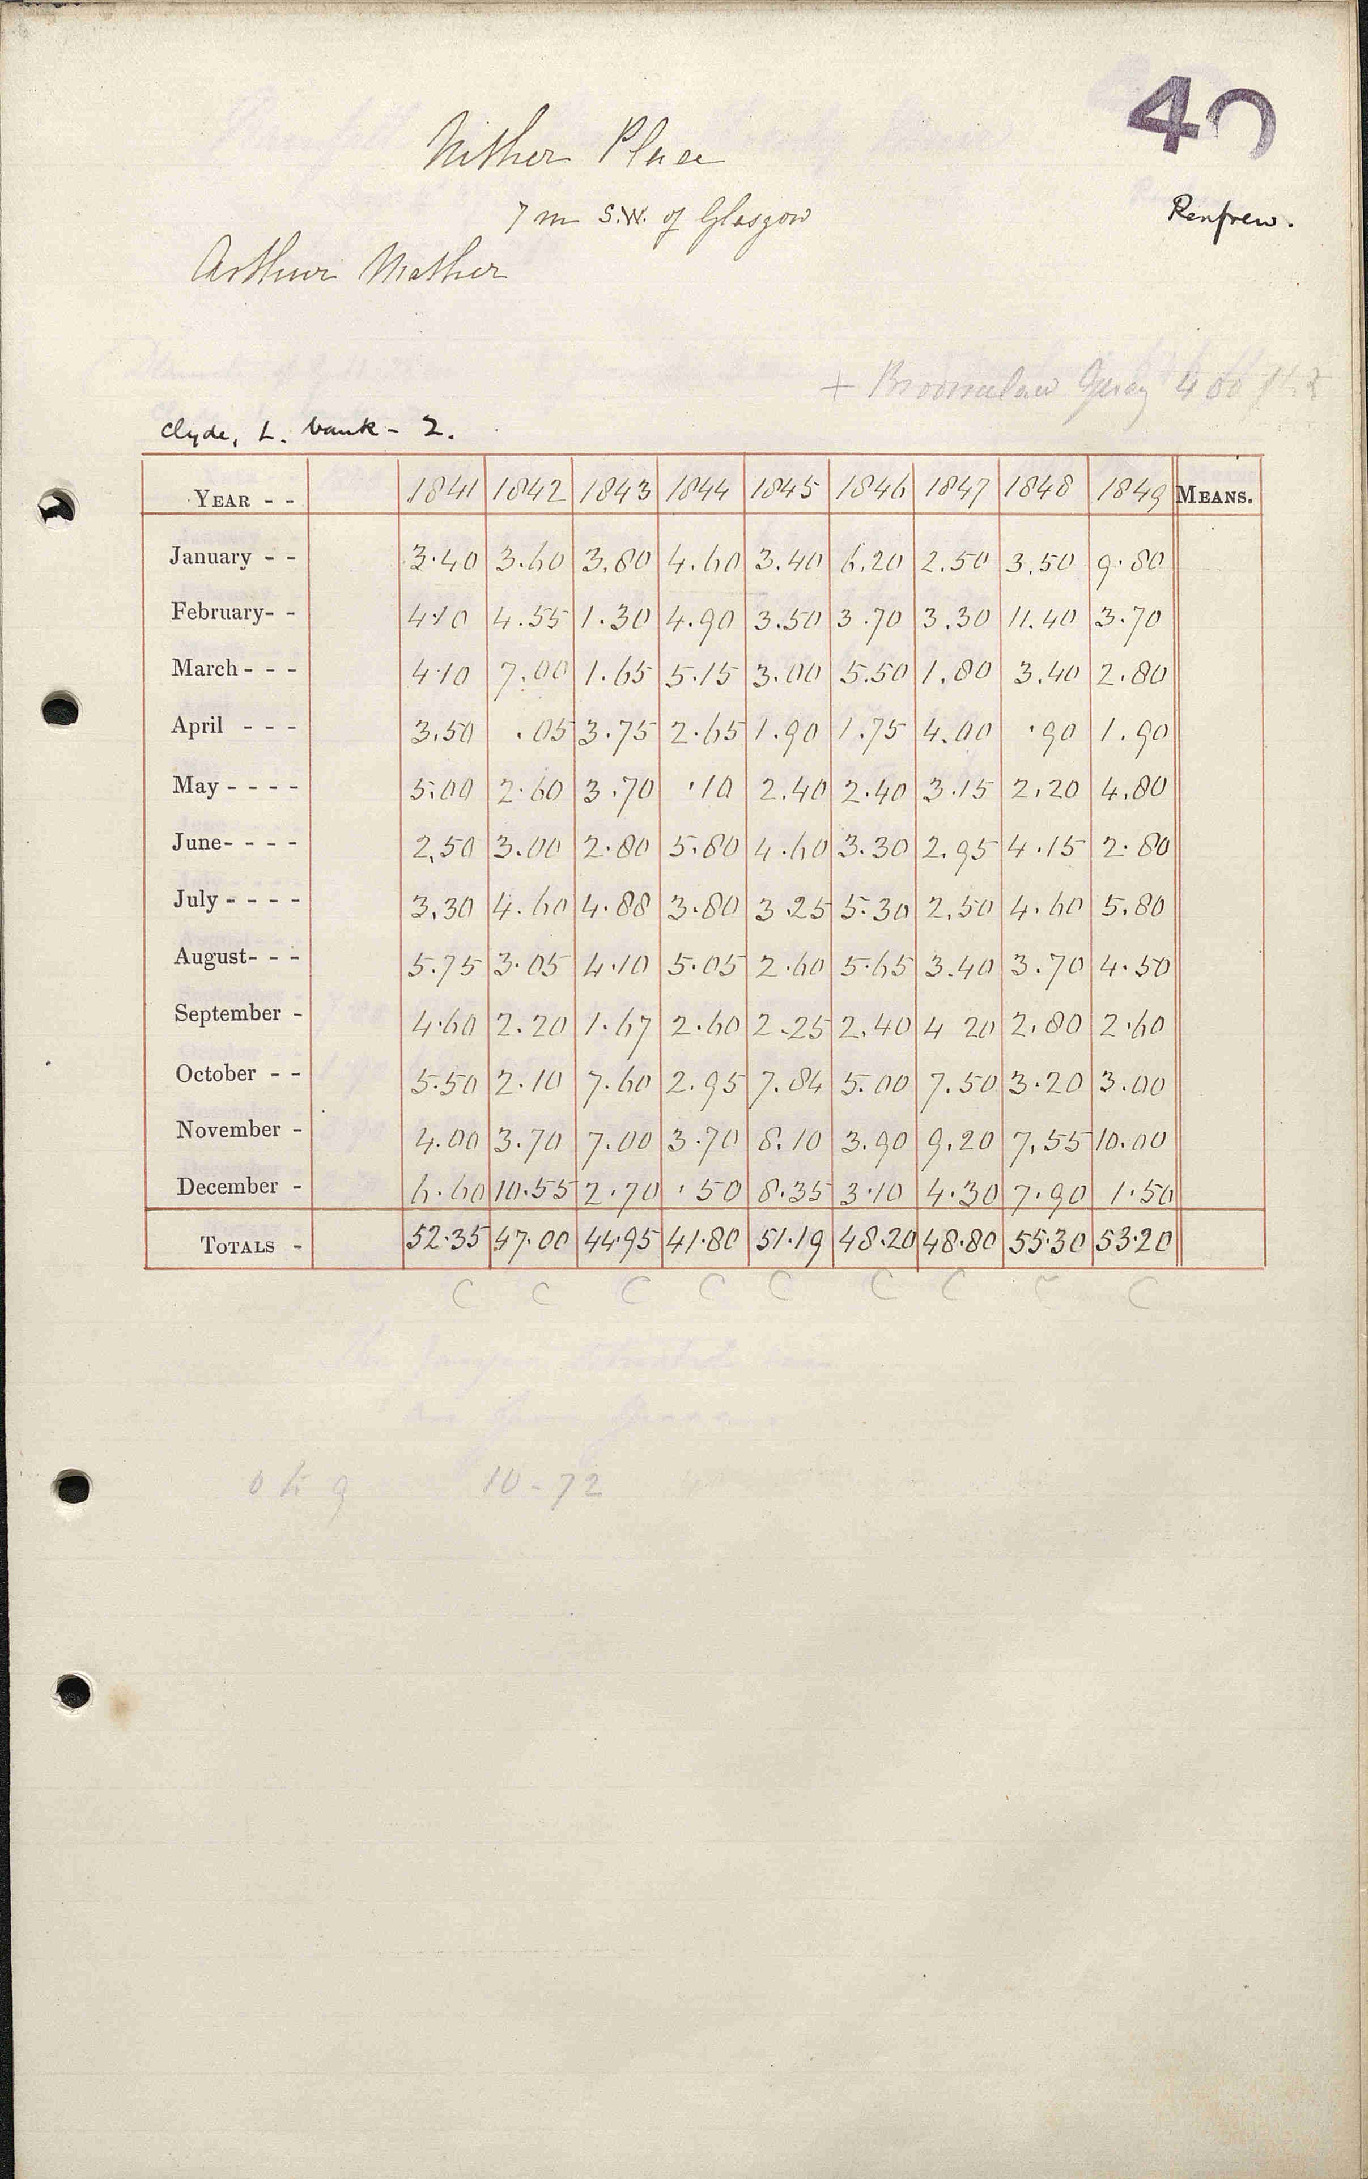 40
Nither Place
7 m S.W. of Glasgow
Renfrew.
Arthur Mather
+ Broomlaw Quay 400
Clyde, L. bank - 2.
YEAR - - 1841 1842 1843 1844 1845 1846 1847 1848 1849 MEANS.
January - - 3.40 3.60 3.80 4.60 3.40 6.20 2.50 3.50 9.80
February- - 4.10 4.55 1.30 4.90 3.50 3.70 3.30 11.40 3.70
March - - - 4.10 7.00 1.65 5.15 3.00 5.50 1.80 3.40 2.80
April - - - 3.50 .05 3.75 2.65 1.90 1.75 4.00 .90 1.90
May - - - - 5.00 2.60 3.70 .10 2.40 2.40 3.15 2.20 4.80
June- - - - 2.50 3.00 2.80 5.80 4.60 3.30 2.95 4.15 2.80
July - - - - 3.30 4.60 4.88 3.80 3.25 5.30 2.50 4.60 5.80
August- - - 5.75 3.05 4.10 5.05 2.60 5.65 3.40 3.70 4.50
September - 4.60 2.20 1.67 2.60 2.25 2.40 4 20 2.80 2.60
October - - 5.50 2.10 7.60 2.95 7.84 5.00 7.50 3.20 3.00
November - 4.00 3.70 7.00 3.70 8.10 3.90 9.20 7.55 10.00
December - 6.60 10.55 2.70 .50 8.35 3.10 4.30 7.90 1.50
TOTALS - 52.35 47.00 44.95 41.80 51.19 48.20 48.80 55.30 53.20
C C C C C C C C C
10-72